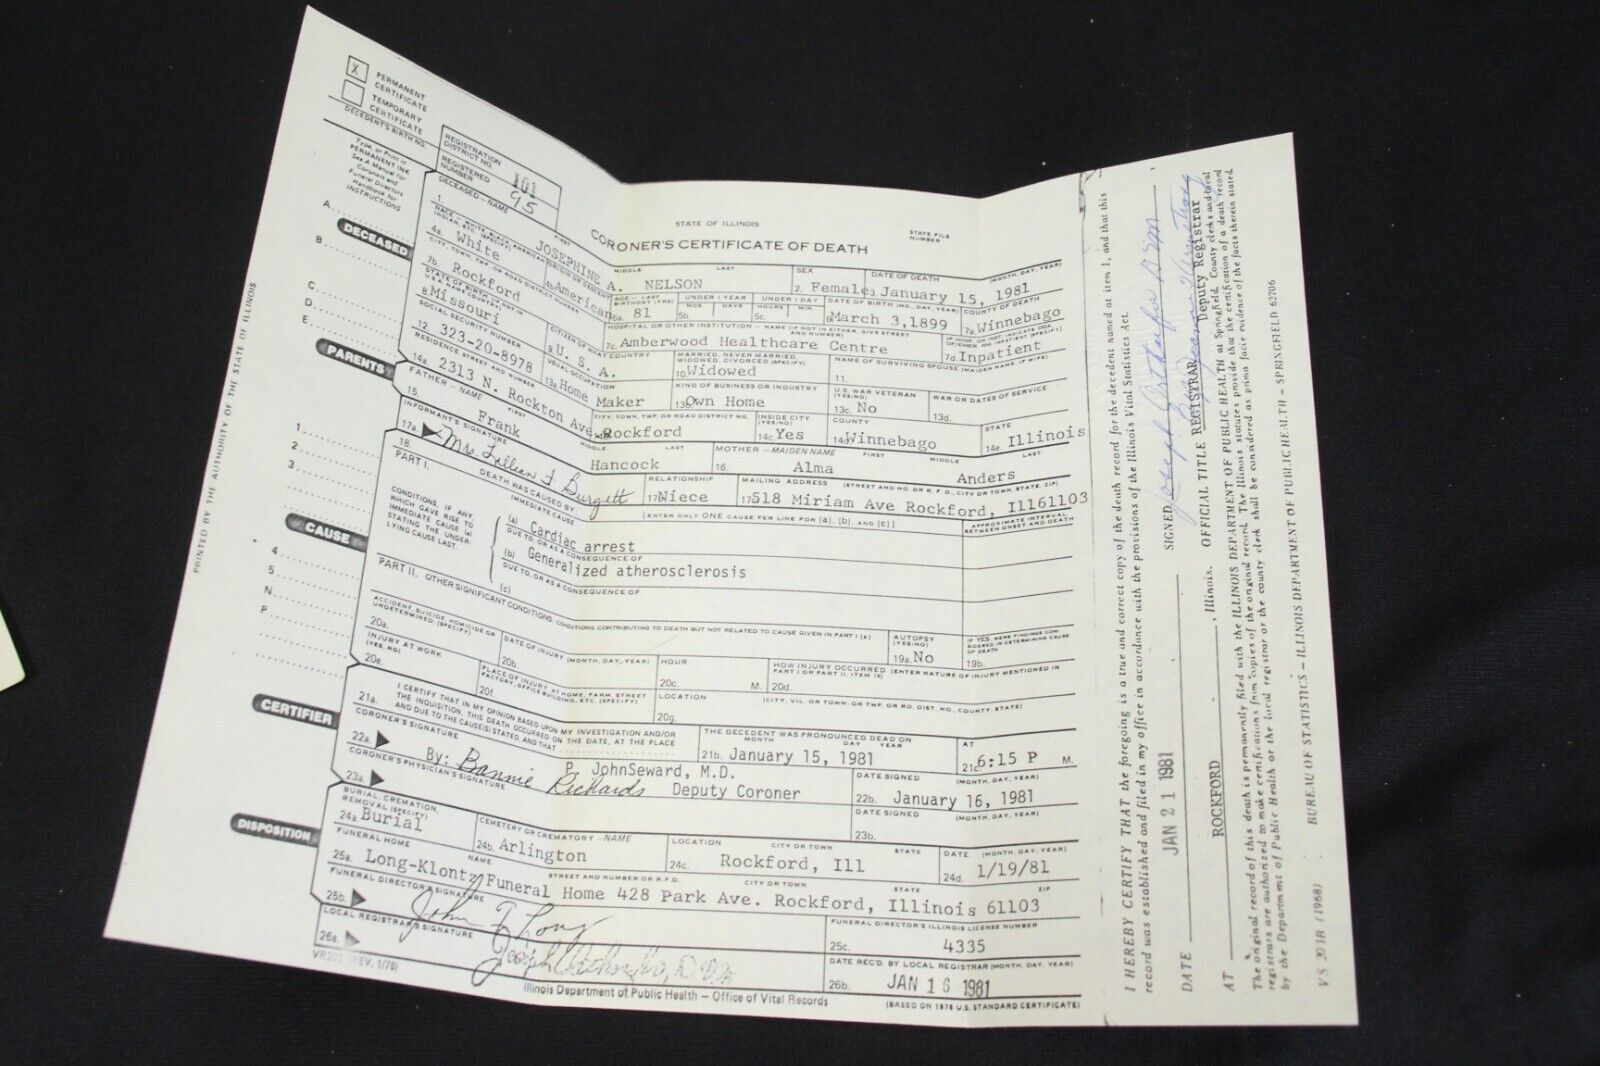 X PERMANENT CERTIFICATE
TEMPORARY CERTIFICATE
DECEDENT'S BIRTH NO.
Type, or Print in
PERMANENT INK
See A Manual for
Coroners and
Funeral Directors
Handbook for
INSTRUCTIONS
REGISTRATION DISTRICT NO. 101
REGISTERED NUMBER 95
STATE OF ILLINOIS
STATE FILE NUMBER
CORONER'S CERTIFICATE OF DEATH
DECEASED—NAME FIRST MIDDLE LAST
1. JOSEPHINE A. NELSON
SEX
2. Female
DATE OF DEATH (MONTH, DAY, YEAR)
3. January 15, 1981
4a. White
ORIGIN OR DESCENT
4b. American
AGE — LAST BIRTHDAY (YRS)
6a. 81
UNDER 1 YEAR
5b. MOS DAYS
UNDER 1 DAY
5c. HOURS MIN
DATE OF BIRTH (MO., DAY, YEAR)
6 March 3, 1899
COUNTY OF DEATH
7a. Winnebago
CITY, TOWN, TWP. OR ROAD DISTRICT NUMBER
7b. Rockford
HOSPITAL OR OTHER INSTITUTION — NAME (IF NOT IN EITHER, GIVE STREET AND NUMBER)
7c. Amberwood Healthcare Centre
IF HOSP. OR INST. INDICATE DOA, OP/EMER. RM, INPATIENT (SPECIFY)
7d. Inpatient
STATE OF BIRTH (IF NOT IN U.S.A. NAME COUNTRY)
8 Missouri
CITIZEN OF WHAT COUNTRY
9 U. S. A.
MARRIED, NEVER MARRIED, WIDOWED, DIVORCED (SPECIFY)
10. Widowed
NAME OF SURVIVING SPOUSE (MAIDEN NAME, IF WIFE)
11.
SOCIAL SECURITY NUMBER
12. 323-20-8978
USUAL OCCUPATION
13a. Home Maker
KIND OF BUSINESS OR INDUSTRY
13b. Own Home
U.S. WAR VETERAN (YES/NO)
13c. No
WAR OR DATES OF SERVICE
13d.
RESIDENCE STREET AND NUMBER
14a. 2313 N. Rockton Ave.
CITY, TOWN, TWP. OR ROAD DISTRICT NO.
Rockford
INSIDE CITY (YES/NO)
14c. Yes
COUNTY
14d. Winnebago
STATE
14e. Illinois
FATHER — NAME FIRST MIDDLE LAST
15. Frank Hancock
MOTHER — MAIDEN NAME FIRST MIDDLE LAST
16. Alma Anders
INFORMANT'S SIGNATURE
17a. Mrs. Lillian F. Burgett
RELATIONSHIP
17. Niece
MAILING ADDRESS (STREET AND NO. OR R.F.D., CITY OR TOWN, STATE, ZIP)
17. 518 Miriam Ave Rockford, Ill 61103
18. DEATH WAS CAUSED BY (ENTER ONLY ONE CAUSE PER LINE FOR (a), (b), AND (c))
APPROXIMATE INTERVAL BETWEEN ONSET AND DEATH
PART I. IMMEDIATE CAUSE
(a) Cardiac arrest
CONDITIONS, IF ANY, WHICH GAVE RISE TO IMMEDIATE CAUSE (a) STATING THE UNDERLYING CAUSE LAST.
DUE TO, OR AS A CONSEQUENCE OF
(b) Generalized atherosclerosis
DUE TO, OR AS A CONSEQUENCE OF
(c)
PART II. OTHER SIGNIFICANT CONDITIONS: CONDITIONS CONTRIBUTING TO DEATH BUT NOT RELATED TO CAUSE GIVEN IN PART I (a)
AUTOPSY (YES/NO)
19a. No
IF YES, WERE FINDINGS CONSIDERED IN DETERMINING CAUSE OF DEATH
19b.
ACCIDENT, SUICIDE, HOMICIDE OR UNDETERMINED (SPECIFY)
20a.
DATE OF INJURY (MONTH, DAY, YEAR)
20b.
HOUR
20c. M.
HOW INJURY OCCURRED (ENTER NATURE OF INJURY MENTIONED IN PART I OR PART II, ITEM 18)
20d.
INJURY AT WORK (YES, NO)
20e.
PLACE OF INJURY, AT HOME, FARM, STREET, FACTORY, OFFICE BUILDING, ETC. (SPECIFY)
20f.
LOCATION (CITY, VIL. OR TOWN, OR TWP. OR RD. DIST. NO., COUNTY, STATE)
20g.
21a. I CERTIFY THAT IN MY OPINION BASED UPON MY INVESTIGATION AND/OR THE INQUISITION, THIS DEATH OCCURRED ON THE DATE, AT THE PLACE AND DUE TO THE CAUSE(S) STATED, AND THAT
THE DECEDENT WAS PRONOUNCED DEAD ON MONTH DAY YEAR
21b. January 15, 1981
AT
21c. 6:15 P M.
CORONER'S SIGNATURE
22a. P. JohnSeward, M.D.
By: Bannie Richards Deputy Coroner
DATE SIGNED (MONTH, DAY, YEAR)
22b. January 16, 1981
CORONER'S PHYSICIAN'S SIGNATURE
23a.
DATE SIGNED (MONTH, DAY, YEAR)
23b.
BURIAL, CREMATION, REMOVAL (SPECIFY)
24a. Burial
CEMETERY OR CREMATORY — NAME
24b. Arlington
LOCATION CITY OR TOWN STATE
24c. Rockford, Ill
DATE (MONTH, DAY, YEAR)
24d. 1/19/81
FUNERAL HOME NAME STREET AND NUMBER OR R.F.D. CITY OR TOWN STATE ZIP
25a. Long-Klontz Funeral Home 428 Park Ave. Rockford, Illinois 61103
FUNERAL DIRECTOR'S SIGNATURE
25b. John T Long
FUNERAL DIRECTOR'S ILLINOIS LICENSE NUMBER
25c. 4335
LOCAL REGISTRAR'S SIGNATURE
26a.
DATE REC'D. BY LOCAL REGISTRAR (MONTH, DAY, YEAR)
26b. JAN 16 1981
VR202 (REV. 1/78)
Illinois Department of Public Health — Office of Vital Records
(BASED ON 1978 U.S. STANDARD CERTIFICATE)
A.
DECEASED
B.
C.
D.
E.
PARENTS
1.
2.
3.
CAUSE
4.
5.
N.
P
CERTIFIER
DISPOSITION
PRINTED BY THE AUTHORITY OF THE STATE OF ILLINOIS
I HEREBY CERTIFY THAT the foregoing is a true and correct copy of the death record for the decedent named at item 1, and that this
record was established and filed in my office in accordance with the provisions of the Illinois Vital Statistics Act.
DATE JAN 21 1981 SIGNED
AT ROCKFORD, Illinois. OFFICIAL TITLE REGISTRAR Deputy Registrar
The original record of this death is permanently filed with the ILLINOIS DEPARTMENT OF PUBLIC HEALTH at Springfield. County clerks and local
registrars are authorized to make certifications from copies of the original record. The Illinois statutes provide that the certification of a death record
by the Department of Public Health or the local registrar or the county clerk shall be considered as prima facie evidence of the facts therein stated.
VS 203B (1968) BUREAU OF STATISTICS — ILLINOIS DEPARTMENT OF PUBLIC HEALTH — SPRINGFIELD 62706